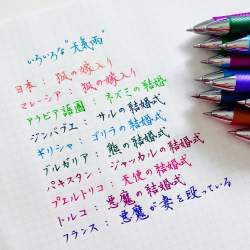 いろいろな“天気雨”
日本：狐の嫁入り
マレーシア：狐の嫁入り
アラビア語圏：ネズミの結婚
ジンバブエ：サルの結婚式
ギリシャ：ゴリラの結婚式
ブルガリア：熊の結婚式
パキスタン：ジャッカルの結婚式
プエルトリコ：天使の結婚式
トルコ：悪魔の結婚式
フランス：悪魔が妻を殴っている